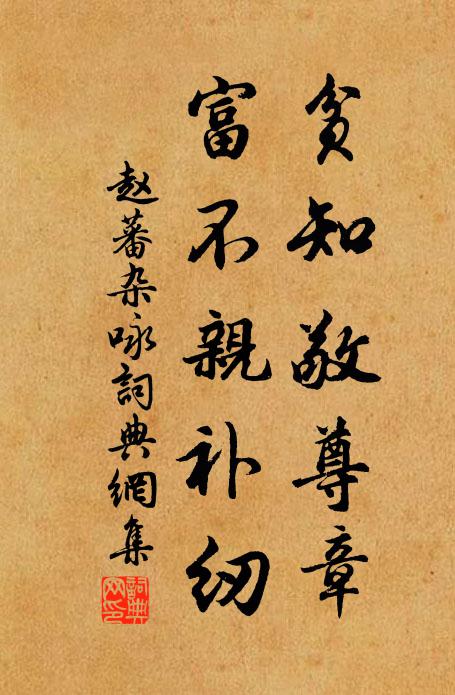 贫知敬尊章
富不親补纫
赵蕃杂咏詞典網集
詞典网印